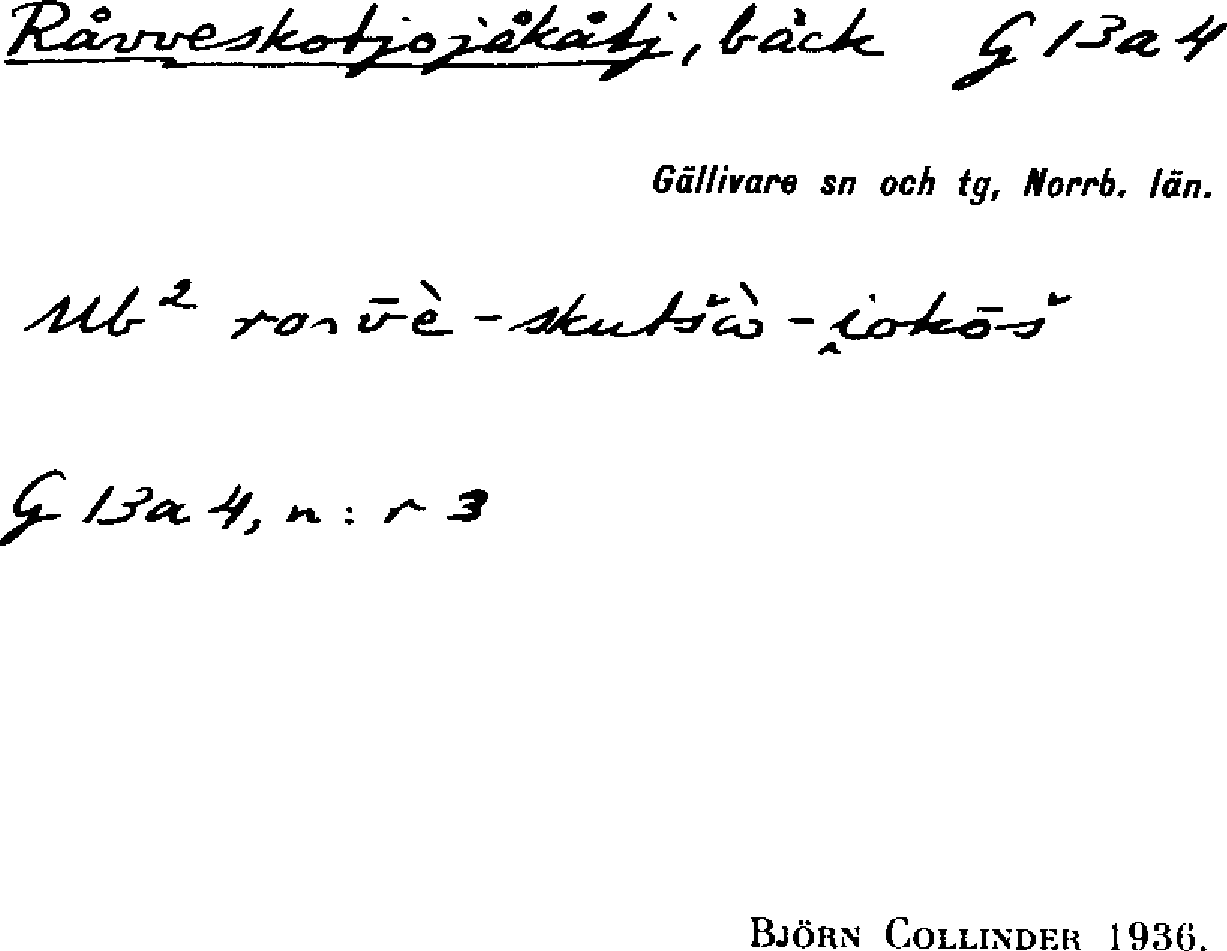 Råvveskotjojåkåtj, bäck G 13a4
Gällivare sn och tg, Norrb. län.
Mb² ronv̄è - skutšò̀ - i̯okōš
G 13a4, n:r 3
BJÖRN COLLINDER 1936.